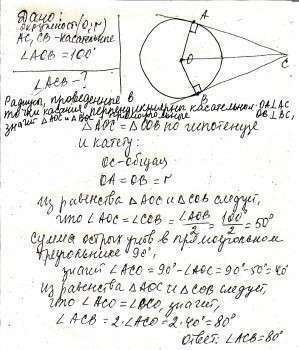 Дано:
окружность(O, r)
AC, CB - касательные
∠ACB = 100°
∠ACB - ?
A
O
B
C
Радиусы, проведенные в
точки касания, перпендикулярны касательным OA⊥AC
OB⊥BC,
значит △AOC и △BOC - прямоугольные
△AOC = △COB по гипотенузе
и катету:
OC - общая
OA = OB = r
Из равенства △AOC и △COB следует,
что ∠AOC = ∠COB = ∠AOB/2 = 100°/2 = 50°
Сумма острых углов в прямоугольном
треугольнике 90°,
значит ∠ACO = 90° - ∠AOC = 90° - 50° = 40°
Из равенства △AOC и △COB следует,
что ∠ACO = ∠BCO, значит,
∠ACB = 2·∠ACO = 2·40° = 80°
Ответ: ∠ACB = 80°